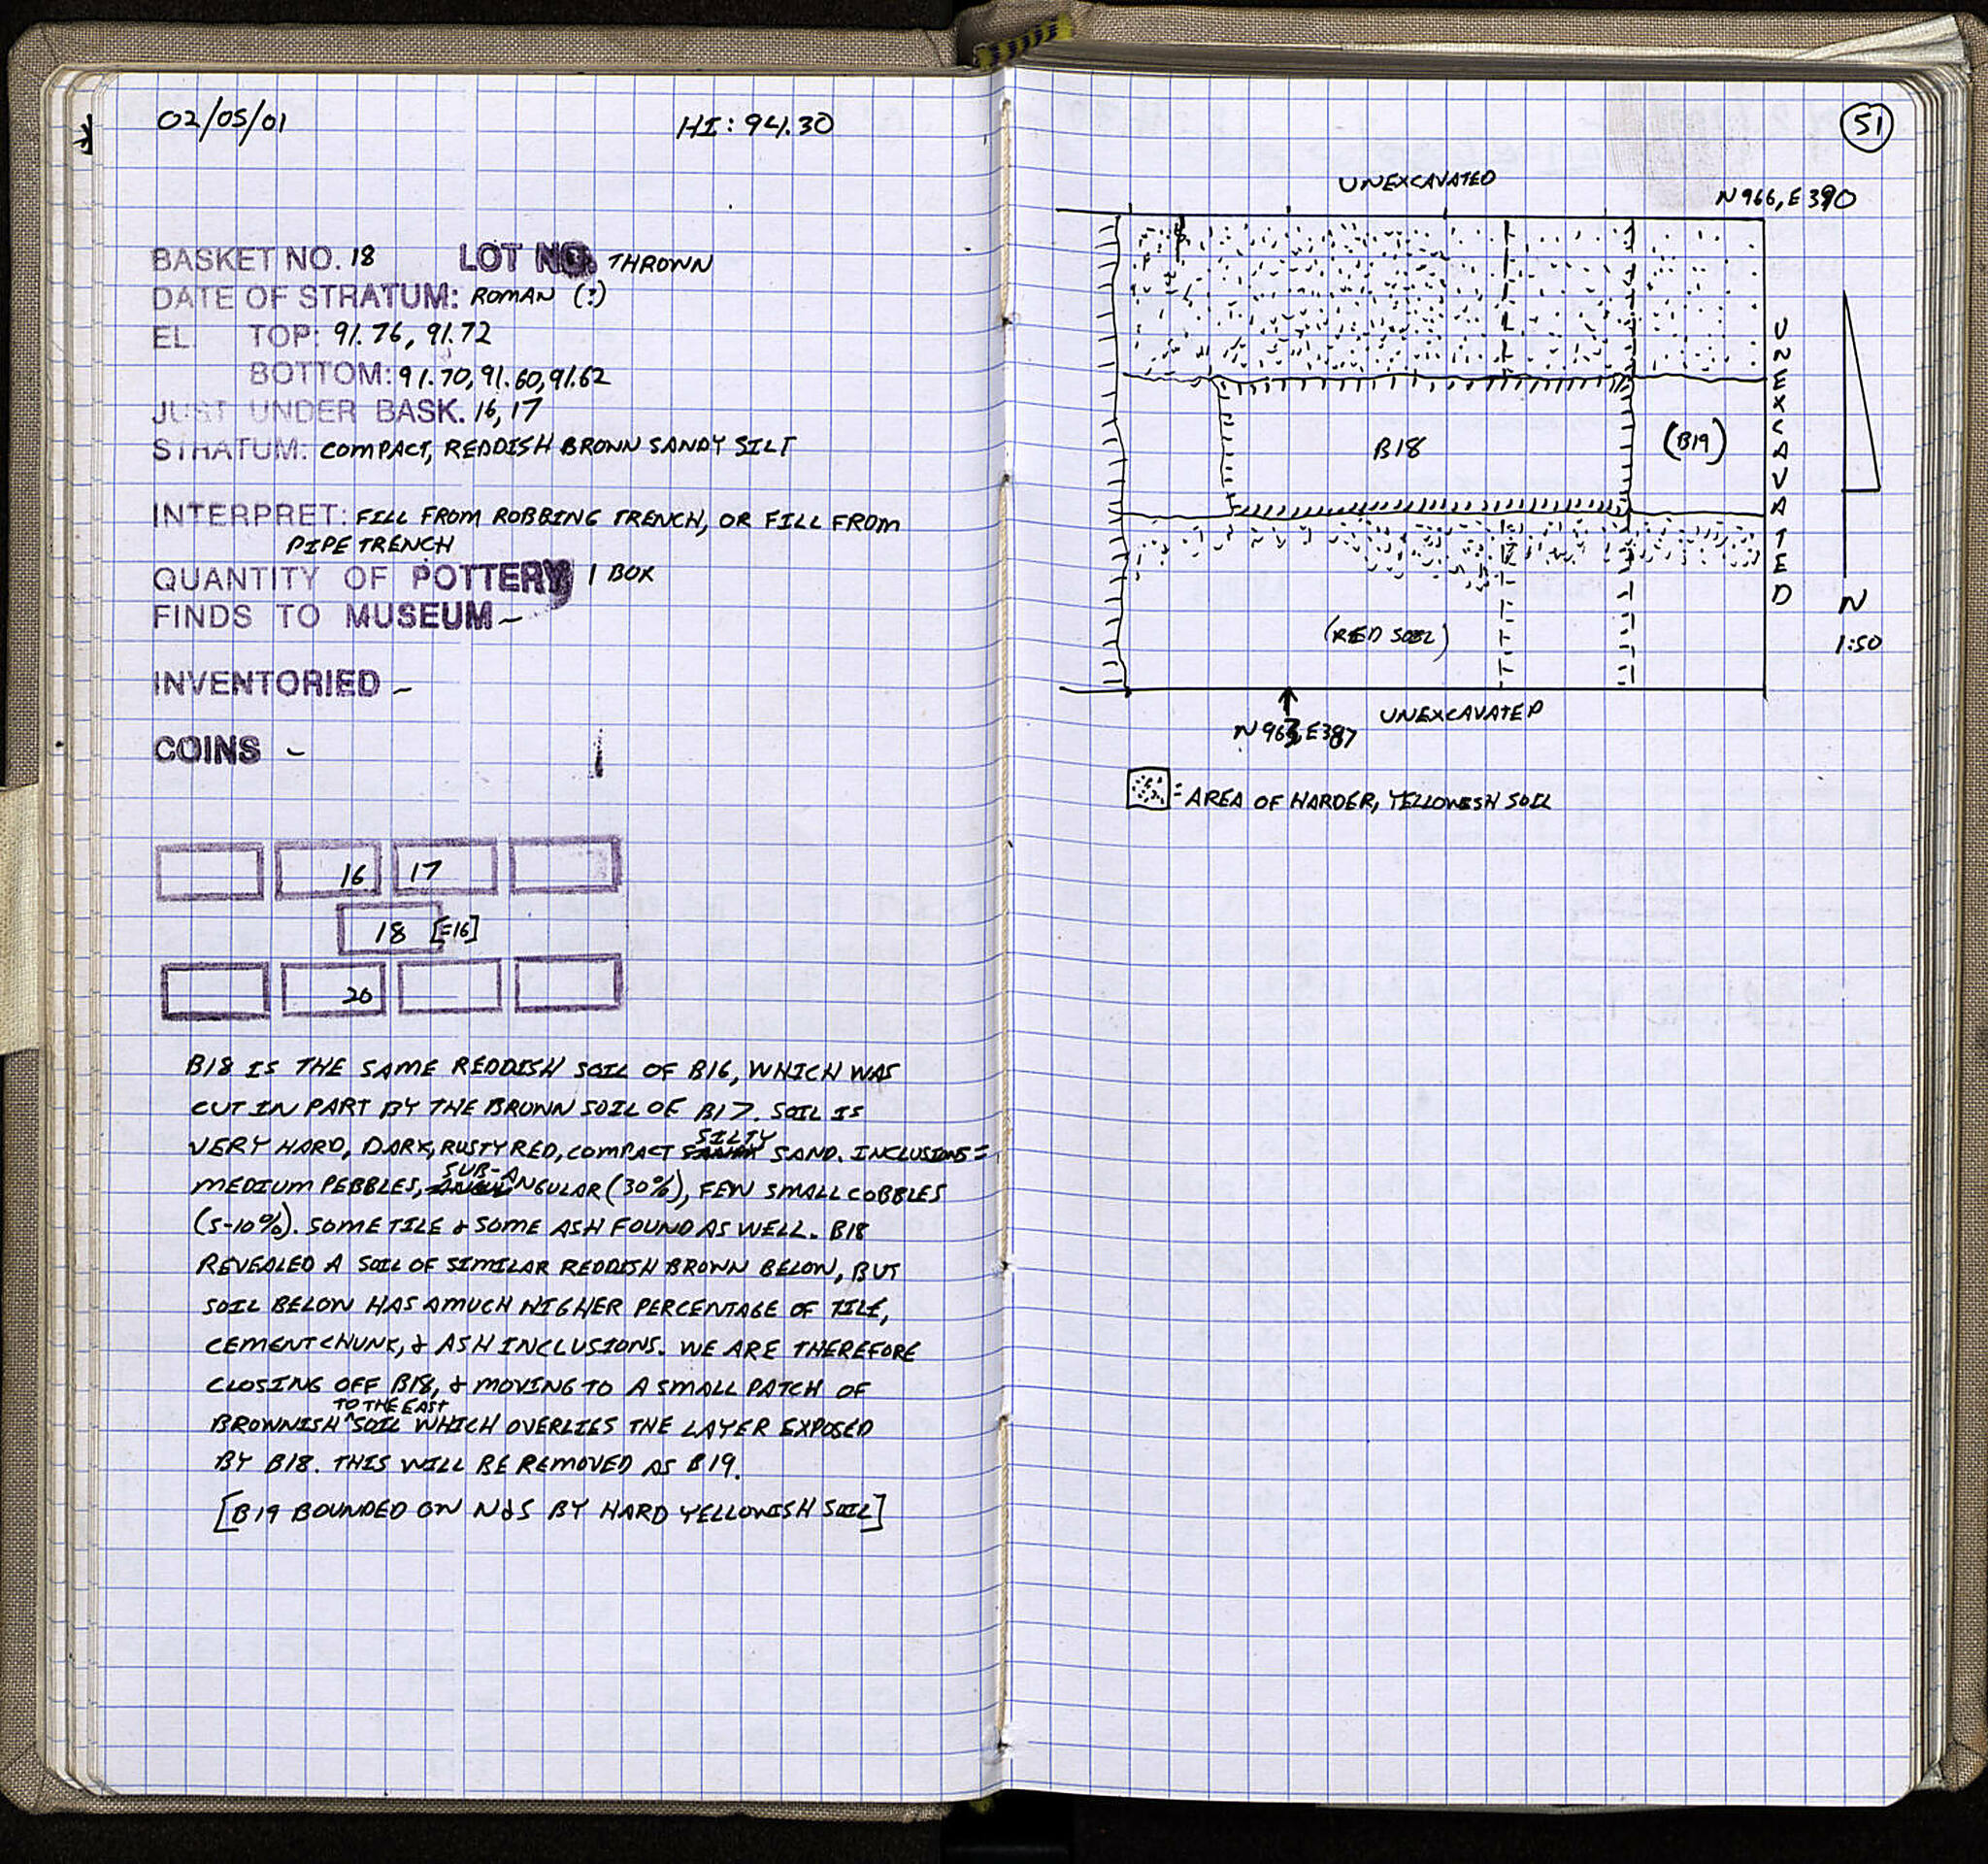 02/05/01
HI: 94.30
BASKET NO. 18 LOT NO. THROWN
DATE OF STRATUM: ROMAN (?)
EL. TOP: 91.76, 91.72
BOTTOM: 91.70, 91.60, 91.62
JUST UNDER BASK. 16, 17
STRATUM: COMPACT, REDDISH BROWN SANDY SILT
INTERPRET: FILL FROM ROBBING TRENCH, OR FILL FROM
PIPE TRENCH
QUANTITY OF POTTERY 1 BOX
FINDS TO MUSEUM –
INVENTORIED –
COINS –
16 17
18 [=16]
20
B18 IS THE SAME REDDISH SOIL OF B16, WHICH WAS
CUT IN PART BY THE BROWN SOIL OF B17. SOIL IS
VERY HARD, DARK, RUSTY RED, COMPACT SILTY SAND. INCLUSIONS =
MEDIUM PEBBLES, SUB-ANGULAR (30%), FEW SMALL COBBLES
(5-10%). SOME TILE & SOME ASH FOUND AS WELL. B18
REVEALED A SOIL OF SIMILAR REDDISH BROWN BELOW, BUT
SOIL BELOW HAS A MUCH HIGHER PERCENTAGE OF TILE,
CEMENT CHUNK, & ASH INCLUSIONS. WE ARE THEREFORE
CLOSING OFF B18, & MOVING TO A SMALL PATCH OF
BROWNISH ^TO THE EAST SOIL WHICH OVERLIES THE LAYER EXPOSED
BY B18. THIS WILL BE REMOVED AS B19.
[B19 BOUNDED ON N&S BY HARD YELLOWISH SOIL]
51
UNEXCAVATED
N966, E390
UNEXCAVATED
B18
(B19)
(RED SOIL)
N
1:50
N963, E387
UNEXCAVATED
= AREA OF HARDER, YELLOWISH SOIL